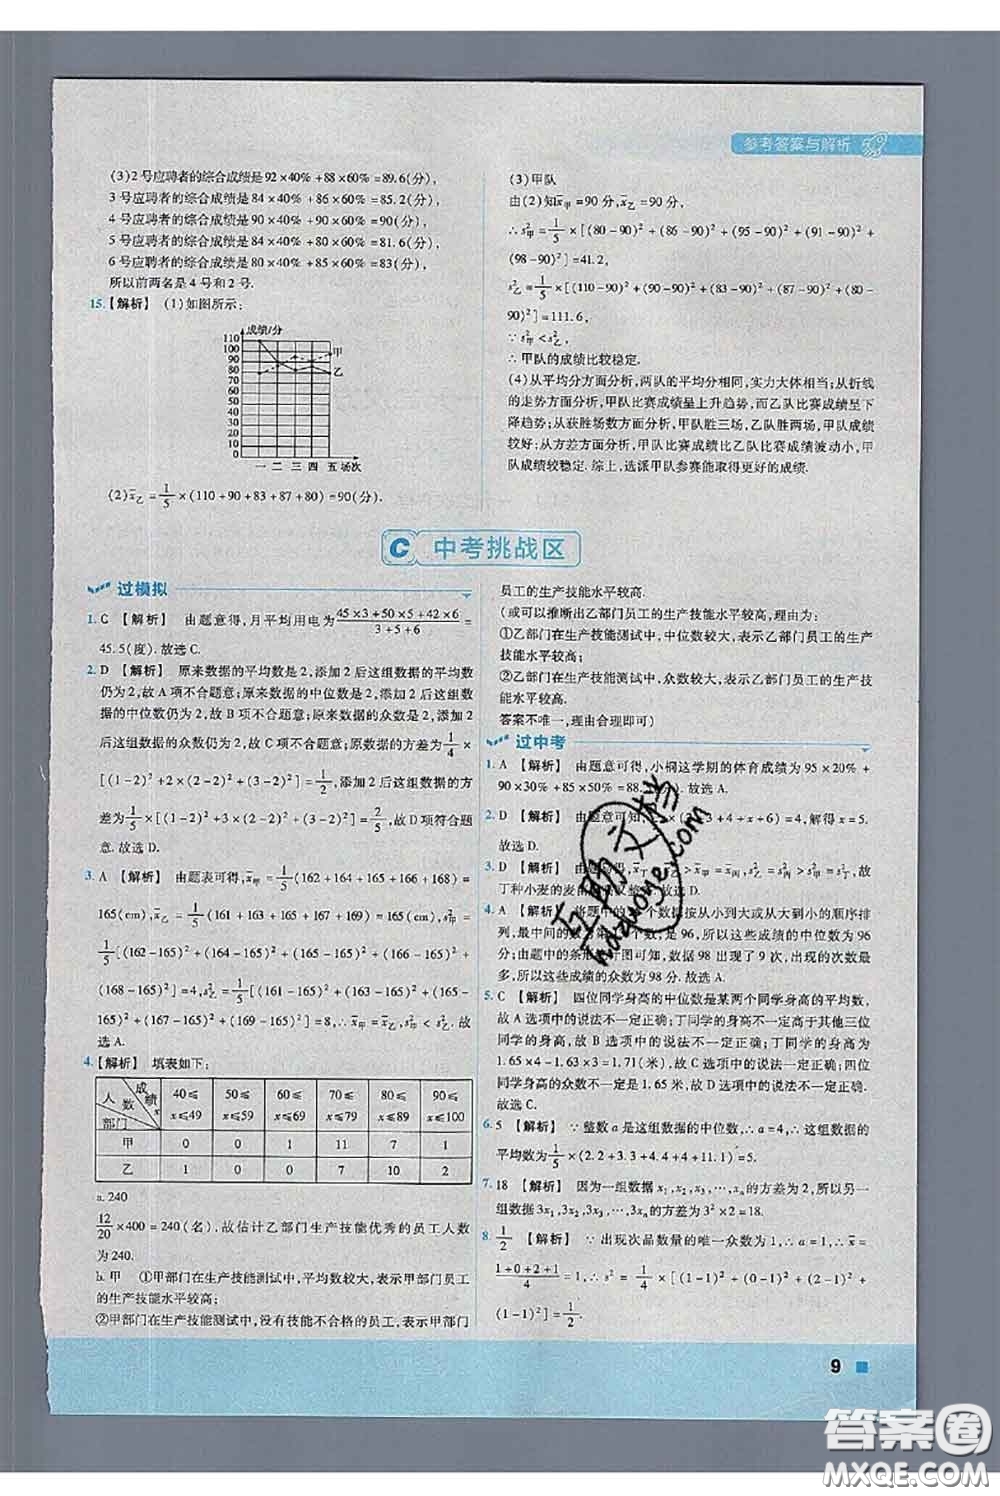 参考答案与解析
(3)2号应聘者的综合成绩是 92×40% +88×60% =89.6(分),
3号应聘者的综合成绩是 84×40% +86×60% =85.2(分),
4号应聘者的综合成绩是 90×40% +90×60% =90(分),
5号应聘者的综合成绩是 84×40% +80×60% =81.6(分),
6号应聘者的综合成绩是 80×40% +85×60% =83(分),
所以前两名是 4 号和 2 号.
15.【解析】 (1)如图所示:
成绩/分
110
100
90
80
70
60
50
40
30
20
10
0
甲
乙
一 二 三 四 五 场次
(2)x̄乙=1/5×(110+90+83+87+80)=90(分).
(3)甲队
由(2)知x̄甲=90分,x̄乙=90分,
∴s²甲=1/5×[(80-90)²+(86-90)²+(95-90)²+(91-90)²+
(98-90)²]=41.2,
s²乙=1/5×[(110-90)²+(90-90)²+(83-90)²+(87-90)²+(80-
90)²]=111.6,
∵s²甲<s²乙,
∴甲队的成绩比较稳定.
(4)从平均分方面分析,两队的平均分相同,实力大体相当;从折线
的走势方面分析,甲队比赛成绩呈上升趋势,而乙队比赛成绩呈下
降趋势;从获胜场数方面分析,甲队胜三场,乙队胜两场,甲队成绩
较好;从方差方面分析,甲队比赛成绩比乙队比赛成绩波动小,甲
队成绩较稳定.综上,选派甲队参赛能取得更好的成绩.
C 中考挑战区
过模拟
1.C 【解析】 由题意得,月平均用电为(45×3+50×5+42×6)/(3+5+6)=
45.5(度).故选C.
2.D 【解析】 原来数据的平均数是2,添加2后这组数据的平均数
仍为2,故A项不合题意;原来数据的中位数是2,添加2后这组数
据的中位数仍为2,故B项不合题意;原来数据的众数是2,添加2
后这组数据的众数仍为2,故C项不合题意;原来数据的方差为1/4×
[(1-2)²+2×(2-2)²+(3-2)²]=1/2,添加2后这组数据的方
差为1/5×[(1-2)²+3×(2-2)²+(3-2)²]=2/5,故D项符合题
意.故选D.
3.A 【解析】 由题表可得,x̄甲=1/5×(162+164+165+166+168)=
165(cm),x̄乙=1/5×(161+163+165+167+169)=165(cm),s²甲=
1/5×[(162-165)²+(164-165)²+(165-165)²+(166-165)²+
(168-165)²]=4,s²乙=1/5×[(161-165)²+(163-165)²+(165-
165)²+(167-165)²+(169-165)²]=8,∴x̄甲=x̄乙,s²甲<s²乙.故
选A.
4.【解析】 填表如下:
成绩x 人数 部门 40≤x≤49 50≤x≤59 60≤x≤69 70≤x≤79 80≤x≤89 90≤x≤100
甲 0 0 1 11 7 1
乙 1 0 0 7 10 2
a.240
12/20×400=240(名).故估计乙部门生产技能优秀的员工人数
为240.
b.甲 ①甲部门在生产技能测试中,平均数较大,表示甲部门员工
的生产技能水平较高;
②甲部门在生产技能测试中,没有技能不合格的员工,表示甲部门
员工的生产技能水平较高.
(或可以推断出乙部门员工的生产技能水平较高,理由为:
①乙部门在生产技能测试中,中位数较大,表示乙部门员工的生产
技能水平较高;
②乙部门在生产技能测试中,众数较大,表示乙部门员工的生产技
能水平较高.
答案不唯一,理由合理即可)
过中考
1.A 【解析】 由题意可得,小桐这学期的体育成绩为95×20%+
90×30%+85×50%=88.5(分).故选A.
2.D 【解析】 由题意可知,1/5×(2+3+4+x+6)=4,解得x=5.
故选D.
3.D 【解析】 由题可得,x̄丁=x̄乙>x̄甲=x̄丙,s²乙=s²丙>s²甲=s²丁,故
丁种小麦的麦苗又高又整齐.故选D.
4.A 【解析】 将题中的 个数据按从小到大或从大到小的顺序排
列,最中间的数 第13个数,是96,所以这些成绩的中位数为96
分;由题中的条形统计图可知,数据98出现了9次,出现的次数最
多,所以这些成绩的众数为98分.故选A.
5.C 【解析】 四位同学身高的中位数是某两个同学身高的平均数,
故A选项中的说法不一定正确;丁同学的身高不一定高于其他三位
同学的身高,故B选项中的说法不一定正确;丁同学的身高为
1.65×4-1.63×3=1.71(米),故C选项中的说法一定正确;四位
同学身高的众数不一定是1.65米,故D选项中的说法不一定正确.
故选C.
6.5 【解析】 ∵整数a是这组数据的中位数,∴a=4,∴这组数据
的平均数为1/5×(2.2+3.3+4.4+4+11.1)=5.
7.18 【解析】 因为一组数据x₁,x₂,x₃,…,xₙ的方差为2,所以另一
组数据3x₁,3x₂,3x₃,…,3xₙ的方差为3²×2=18.
8.1/2 【解析】 ∵出现次品数量的唯一众数为1,∴a=1,∴x̄=
(1+0+2+1)/4=1,∴s²=1/4×[(1-1)²+(0-1)²+(2-1)²+
(1-1)²]=1/2.
互助文档
hdzuoye.com
9
答案圈
MXQE.COM